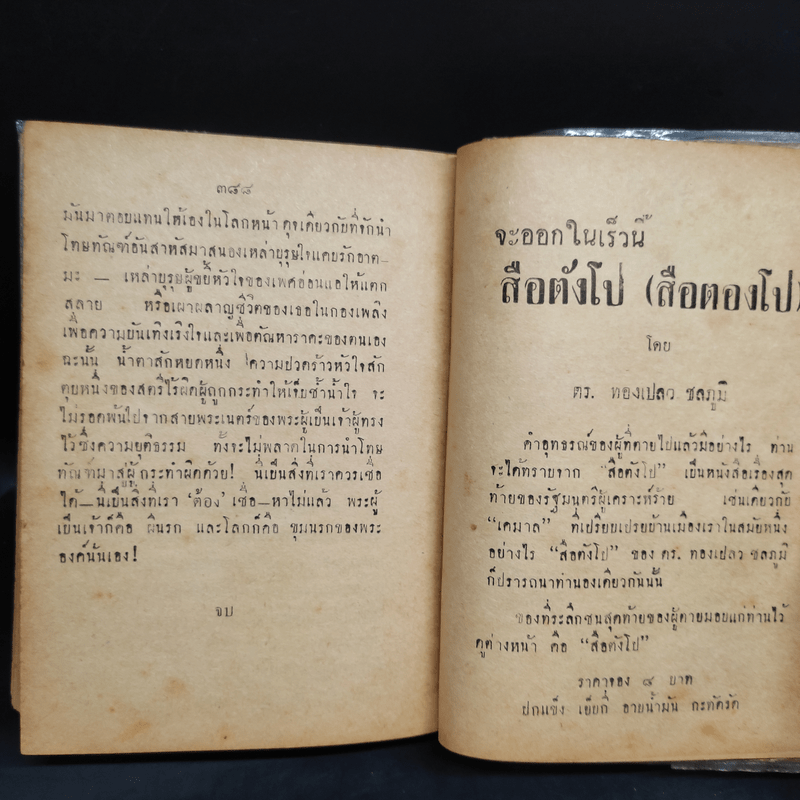 ๓๘๘
มันมาตอบแทนให้เองในโลกหน้า ดุจเดียวกับที่จักนำ
โทษทัณฑ์อันสาหัสมาสนองเหล่าบุรุษใจแคบรักอาต—
มะ — เหล่าบุรุษผู้ขยี้หัวใจของเพศอ่อนแอให้แตก
สลาย หรือเผาผลาญชีวิตของเธอในกองเพลิง
เพื่อความบันเทิงเริงใจและเพื่อตัณหาราคะของตนเอง
ฉะนั้น น้ำตาสักหยดหนึ่ง ความปวดร้าวหัวใจสัก
ตุบหนึ่งของสตรีไร้ผิดผู้ถูกกระทำให้เจ็บช้ำน้ำใจ จะ
ไม่รอดพ้นไปจากสายพระเนตร์ของพระผู้เป็นเจ้าผู้ทรง
ไว้ซึ่งความยุติธรรม ทั้งจะไม่พลาดในการนำโทษ
ทัณฑ์มาสู่ผู้กระทำผิดด้วย! นี่เป็นสิ่งที่เราควรเชื่อ
ได้—นี่เป็นสิ่งที่เรา ‘ต้อง’ เชื่อ—หาไม่แล้ว พระผู้
เป็นเจ้าก็คือ ผีนรก และโลกก็คือ ขุมนรกของพระ
องค์นั่นเอง!
จบ
จะออกในเร็วนี้
สือตังโป (สือตองโป)
โดย
ดร. ทองเปลว ชลภูมิ
คำอุทธรณ์ของผู้ที่ตายไปแล้วมีอย่างไร ท่าน
จะได้ทราบจาก “สือตังโป” เป็นหนังสือเรื่องสุด
ท้ายของรัฐมนตรีผู้เคราะห์ร้าย เช่นเดียวกับ
“เคมาล” ที่เปรียบเปรยบ้านเมืองเราในสมัยหนึ่ง
อย่างไร “สือตังโป” ของ ดร. ทองเปลว ชลภูมิ
ก็ปรารถนาทำนองเดียวกันนั้น
ของที่ระลึกชิ้นสุดท้ายของผู้ตายมอบแก่ท่านไว้
ดูต่างหน้า คือ “สือตังโป”
ราคาจอง ๘ บาท
ปกแข็ง เย็บกี่ อาบน้ำมัน กะทัดรัด